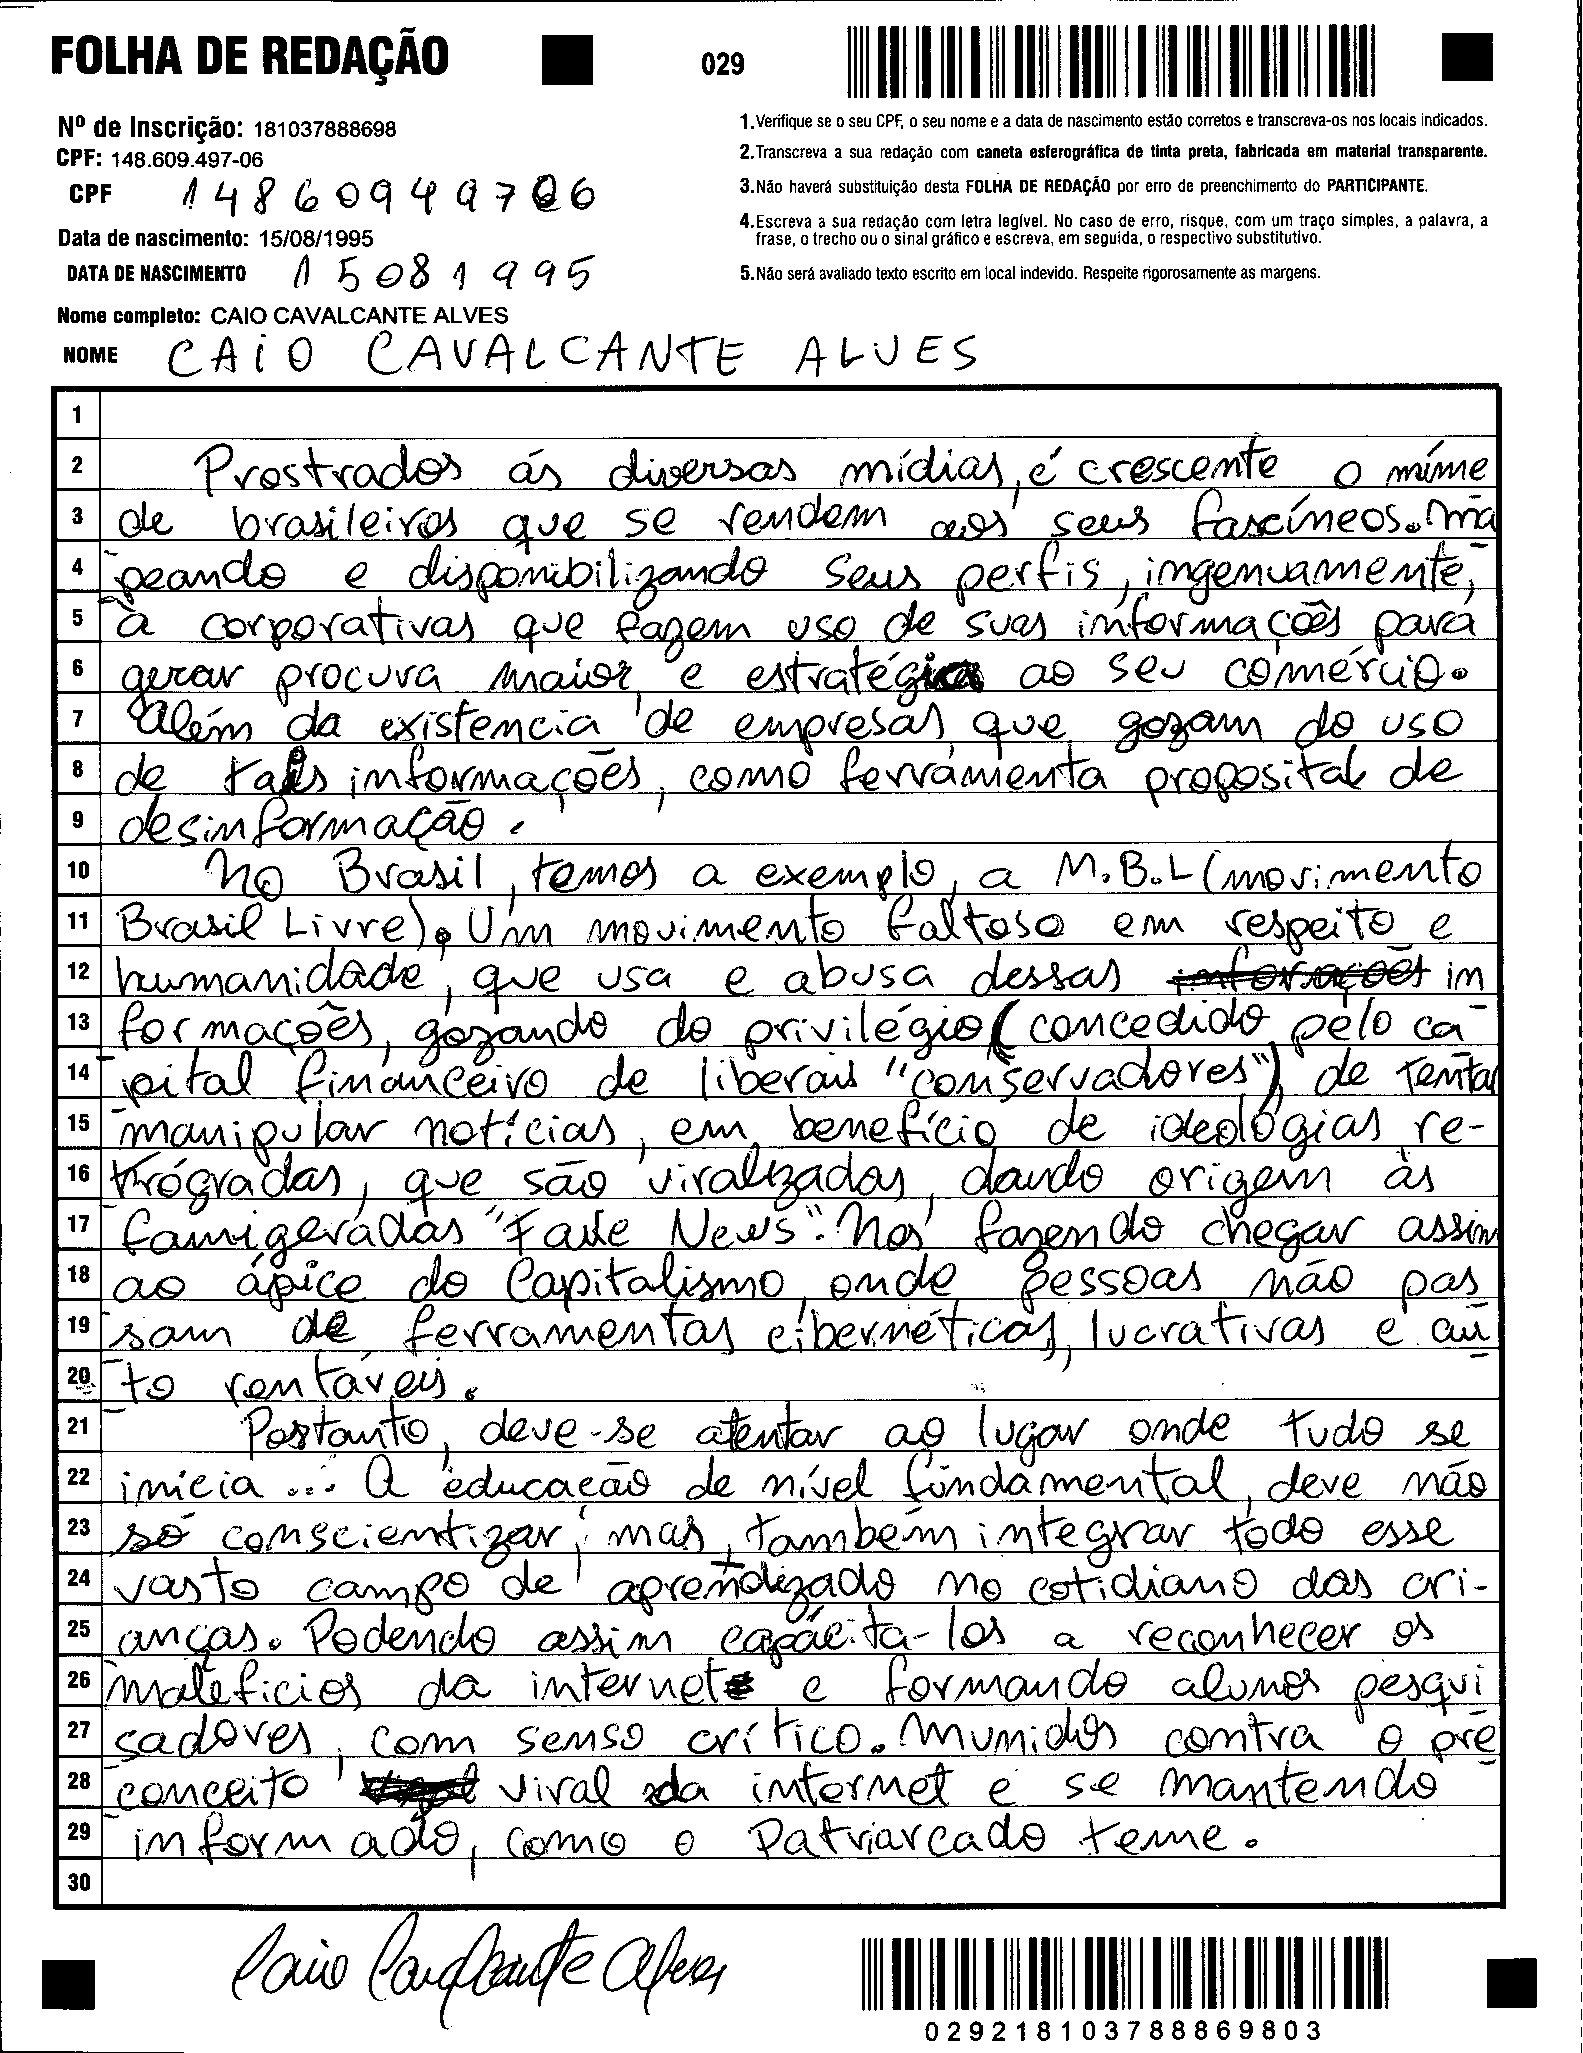 FOLHA DE REDAÇÃO
029
Nº de Inscrição: 181037888698
CPF: 148.609.497-06
CPF 14860949706
Data de nascimento: 15/08/1995
DATA DE NASCIMENTO 15081995
Nome completo: CAIO CAVALCANTE ALVES
NOME CAIO CAVALCANTE ALVES
1.Verifique se o seu CPF, o seu nome e a data de nascimento estão corretos e transcreva-os nos locais indicados.
2.Transcreva a sua redação com caneta esferográfica de tinta preta, fabricada em material transparente.
3.Não haverá substituição desta FOLHA DE REDAÇÃO por erro de preenchimento do PARTICIPANTE.
4.Escreva a sua redação com letra legível. No caso de erro, risque, com um traço simples, a palavra, a
frase, o trecho ou o sinal gráfico e escreva, em seguida, o respectivo substitutivo.
5.Não será avaliado texto escrito em local indevido. Respeite rigorosamente as margens.
1
2 Prostrados ás diversas mídias, é crescente o múme
3 de brasileiros que se rendem aos seus fascíneos. Ma
4 peando e disponibilizando seus perfis, ingenuamente,
5 à corporativas que fazem uso de suas informações para
6 gerar procura maior e estratégica ao seu comércio.
7 Além da existencia de empresas que gozam do uso
8 de tais informações, como ferramenta proposital de
9 desinformação.
10 No Brasil, temos a exemplo, a M.B.L (movimento
11 Brasil Livre). Um movimento faltoso em respeito e
12 humanidade, que usa e abusa dessas inforações in
13 formações, gozando do privilégio (concedido pelo ca
14 pital financeiro de liberais "conservadores") de tenta
15 manipular notícias, em benefício de ideológias re-
16 trógradas, que são viralizadas, dando origem às
17 famigeradas "Fake News". Nos fazendo chegar assim
18 ao ápice do Capitalismo, onde pessoas não pas
19 sam de ferramentas cibernéticas, lucrativas e au
20 to rentáveis.
21 Portanto, deve-se atentar ao lugar onde tudo se
22 inicia... A educação de nível fundamental, deve não
23 só conscientizar, mas, também integrar todo esse
24 vasto campo de aprendizado no cotidiano das cri-
25 anças. Podendo assim capácita-los a reconhecer os
26 maleficios da internet e formando alunos pesqui
27 sadores, com senso crítico. Munidos contra o pré
28 conceito viral da internet e se mantendo
29 informado, como o Patriarcado teme.
30
Caio Cavalcante Alves
029218103788869803